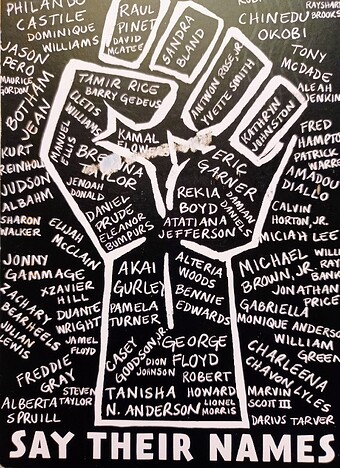 PHILANDO
CASTILE
DOMINIQUE
WILLIAMS
JASON
PERO
MAURICE
GORDON
BOTHAM
JEAN
KURT
REINHOLD
JUDSON
ALBAHM
SHARON
WALKER
ELIJAH
MCCLAIN
JONNY
GAMMAGE
XZAVIER
HILL
ZACHARY
BEARHEELS
DUANTE
WRIGHT
JULIAN
LEWIS
JAMEL
FLOYD
FREDDIE
GRAY
STEVEN
TAYLOR
ALBERTA
SPRUILL
RAUL
PINET
DAVID
MCATEE
SANDRA
BLAND
ANTWON ROSE JR
YVETTE SMITH
KATHRYN
JOHNSTON
TAMIR RICE
BARRY GEDEUS
CLETIS
WILLIAMS
MANUEL
ELLIS
KAMAL
FLOW
BRE NA
LOR
JENOAH
DONALD
DANIEL
PRUDE
ELEANOR
BUMPURS
ERIC
GARNER
DAMIAN
DANIELS
REKIA
BOYD
ATATIANA
JEFFERSON
AKAI
GURLEY
PAMELA
TURNER
ALTERIA
WOODS
BENNIE
EDWARDS
CASEY
GOODSON JR
GEORGE
FLOYD
DION
JOHNSON
ROBERT
HOWARD
TANISHA
N. ANDERSON
LIONEL
MORRIS
ROBER
KUR
RAYSHAR
BROOKS
CHINEDU
OKOBI
TONY
MCDADE
ALEAH
JENKIN
FRED
HAMPTO
PATRICK
WARRE
AMADOU
DIALLO
CALVIN
HORTON, JR.
MICIAH LEE
MICHAEL
BROWN, JR
WILL
RAY
BANK
JONATHAN
PRICE
GABRIELLA
MONIQUE ANDERSO
WILLIAM
GREEN
CHARLEENA
CHAVON LYLES
MARVIN
SCOTT III
DARIUS TARVER
SAY THEIR NAMES